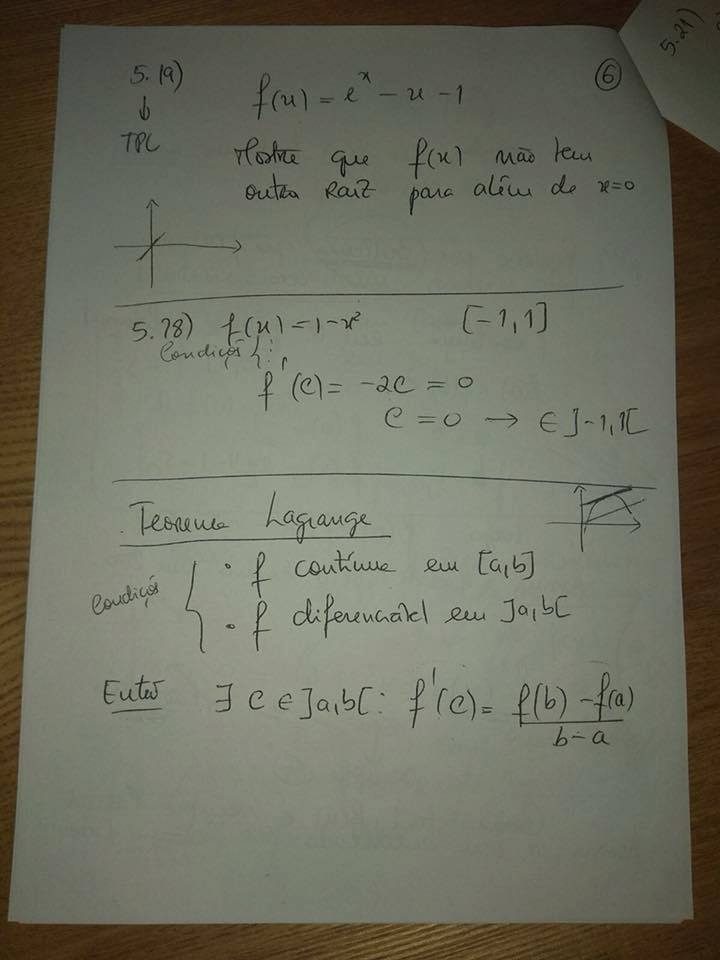 5.21)
5.19)
↓
TPC
f(x) = e^x - x - 1
6
Mostre que f(x) não tem
outra Raiz para além de x=0
5.28) f(x) = 1 - x² [-1,1]
Condições { :
f'(c) = -2c = 0
c = 0 → ∈ ]-1,1[
Teorema Lagrange
Condições {
. f contínua em [a,b]
. f diferenciável em ]a,b[
Então ∃ c ∈ ]a,b[ : f'(c) = f(b) - f(a)
b - a